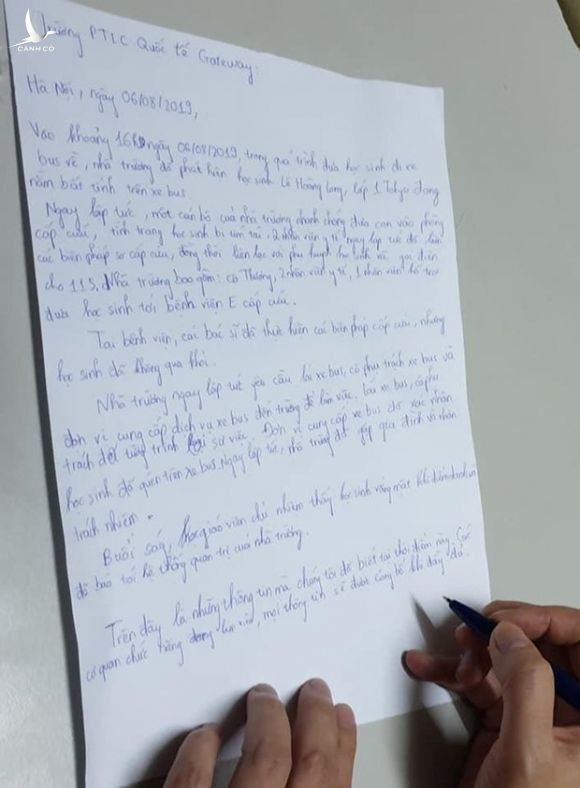 CÁNH CÒ
Trường PTLC Quốc tế Gateway:
Hà Nội, ngày 06/08/2019,
Vào khoảng 16h ngày 06/08/2019, trong quá trình đưa học sinh đi xe
bus về, nhà trường đã phát hiện học sinh Lê Hoàng Long, lớp 1 Tokyo đang
nằm bất tỉnh trên xe bus
Ngay lập tức, một cán bộ của nhà trường nhanh chóng đưa con vào phòng
cấp cứu, tình trạng học sinh bị tím tái, 2 nhân viên y tế ngay lập tức đã làm
các biện pháp sơ cấp cứu, đồng thời liên lạc với phụ huynh học sinh và gọi điện
cho 115. Nhà trường bao gồm: cô Thương, 2 nhân viên y tế, 1 nhân viên hỗ trợ
đưa học sinh tới bệnh viện E cấp cứu.
Tại bệnh viện, các bác sĩ đã thực hiện các biện pháp cấp cứu, nhưng
học sinh đã không qua khỏi.
Nhà trường ngay lập tức yêu cầu lái xe bus, cô phụ trách xe bus và
đơn vị cung cấp dịch vụ xe bus đến trường để làm việc. Lái xe bus, cô phụ
trách để tường trình lại sự việc. Đơn vị cung cấp xe bus đã xác nhận
học sinh đã quên trên xe bus. Ngay lập tức, nhà trường đã gặp gia đình và nhận
trách nhiệm.
Buổi sáng, giáo viên chủ nhiệm thấy học sinh vắng mặt khi điểm danh và
đã báo tới hệ thống quản trị của nhà trường.
Trên đây là những thông tin mà chúng tôi đã biết tại thời điểm này. Các
cơ quan chức năng đang làm việc, mọi thông tin sẽ được công bố đầy đủ.